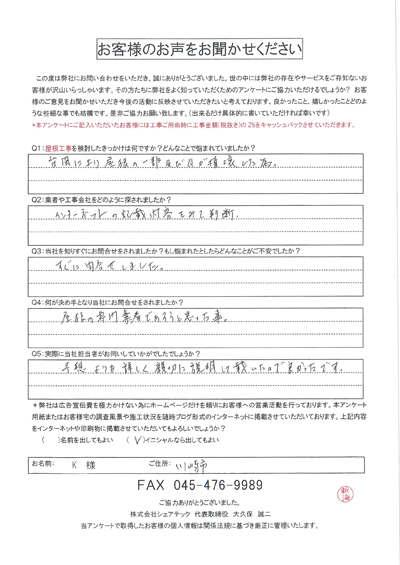 お客様のお声をお聞かせください
この度は弊社にお問い合わせをいただき、誠にありがとうございました。世の中には弊社の存在やサービスをご存知ないお
客様が沢山いらっしゃいます。その方たちに弊社をよく知っていただくためのアンケートにご協力いただけるでしょうか? お客
様のご意見をお聞かせいただき今後の活動に反映させていただきたいと考えております。良かったこと、嬉しかったことどのよ
うな些細な事でも結構です。是非ご協力お願い致します。(出来るだけ具体的に書いていただければ幸いです)
*本アンケートにご記入いただいたお客様には工事ご用命時に工事金額(税抜き)の2%をキャッシュバックさせていただきます。
Q1:屋根工事を検討したきっかけは何ですか?どんなことで悩まれていましたか?
台風により屋根の一部及び が破壊した為。
Q2:業者や工事会社をどのように探されましたか?
インターネットの記載内容をみて判断。
Q3:当社を知りすぐにお問合せをされましたか?もし悩まれたとしたらどんなことがご不安でしたか?
すぐに問合せしました。
Q4:何が決め手となり当社にお問合せをされましたか?
屋根の専門業者であろうと思った事。
Q5:実際に当社担当者がお伺いしていかがでしたでしょうか?
予想よりも詳しく親切に説明して戴いたのでよかったです。
*弊社は広告宣伝費を極力かけない為にホームページだけを頼りにお客様への営業活動を行っております。本アンケート
用紙またはお客様宅の調査風景や施工状況を随時ブログ形式のインターネットに掲載させていただいております。上記内容
をインターネットや印刷物に掲載させていただいてもよろしいでしょうか?
( )名前を出してもよい (✓)イニシャルなら出してもよい
お名前: K 様 ご住所: 川崎市
FAX 045-476-9989
ご協力ありがとうございました。
株式会社シェアテック 代表取締役 大久保 誠二
当アンケートで取得したお客様の個人情報は関係法規に基づき厳正に管理いたします。